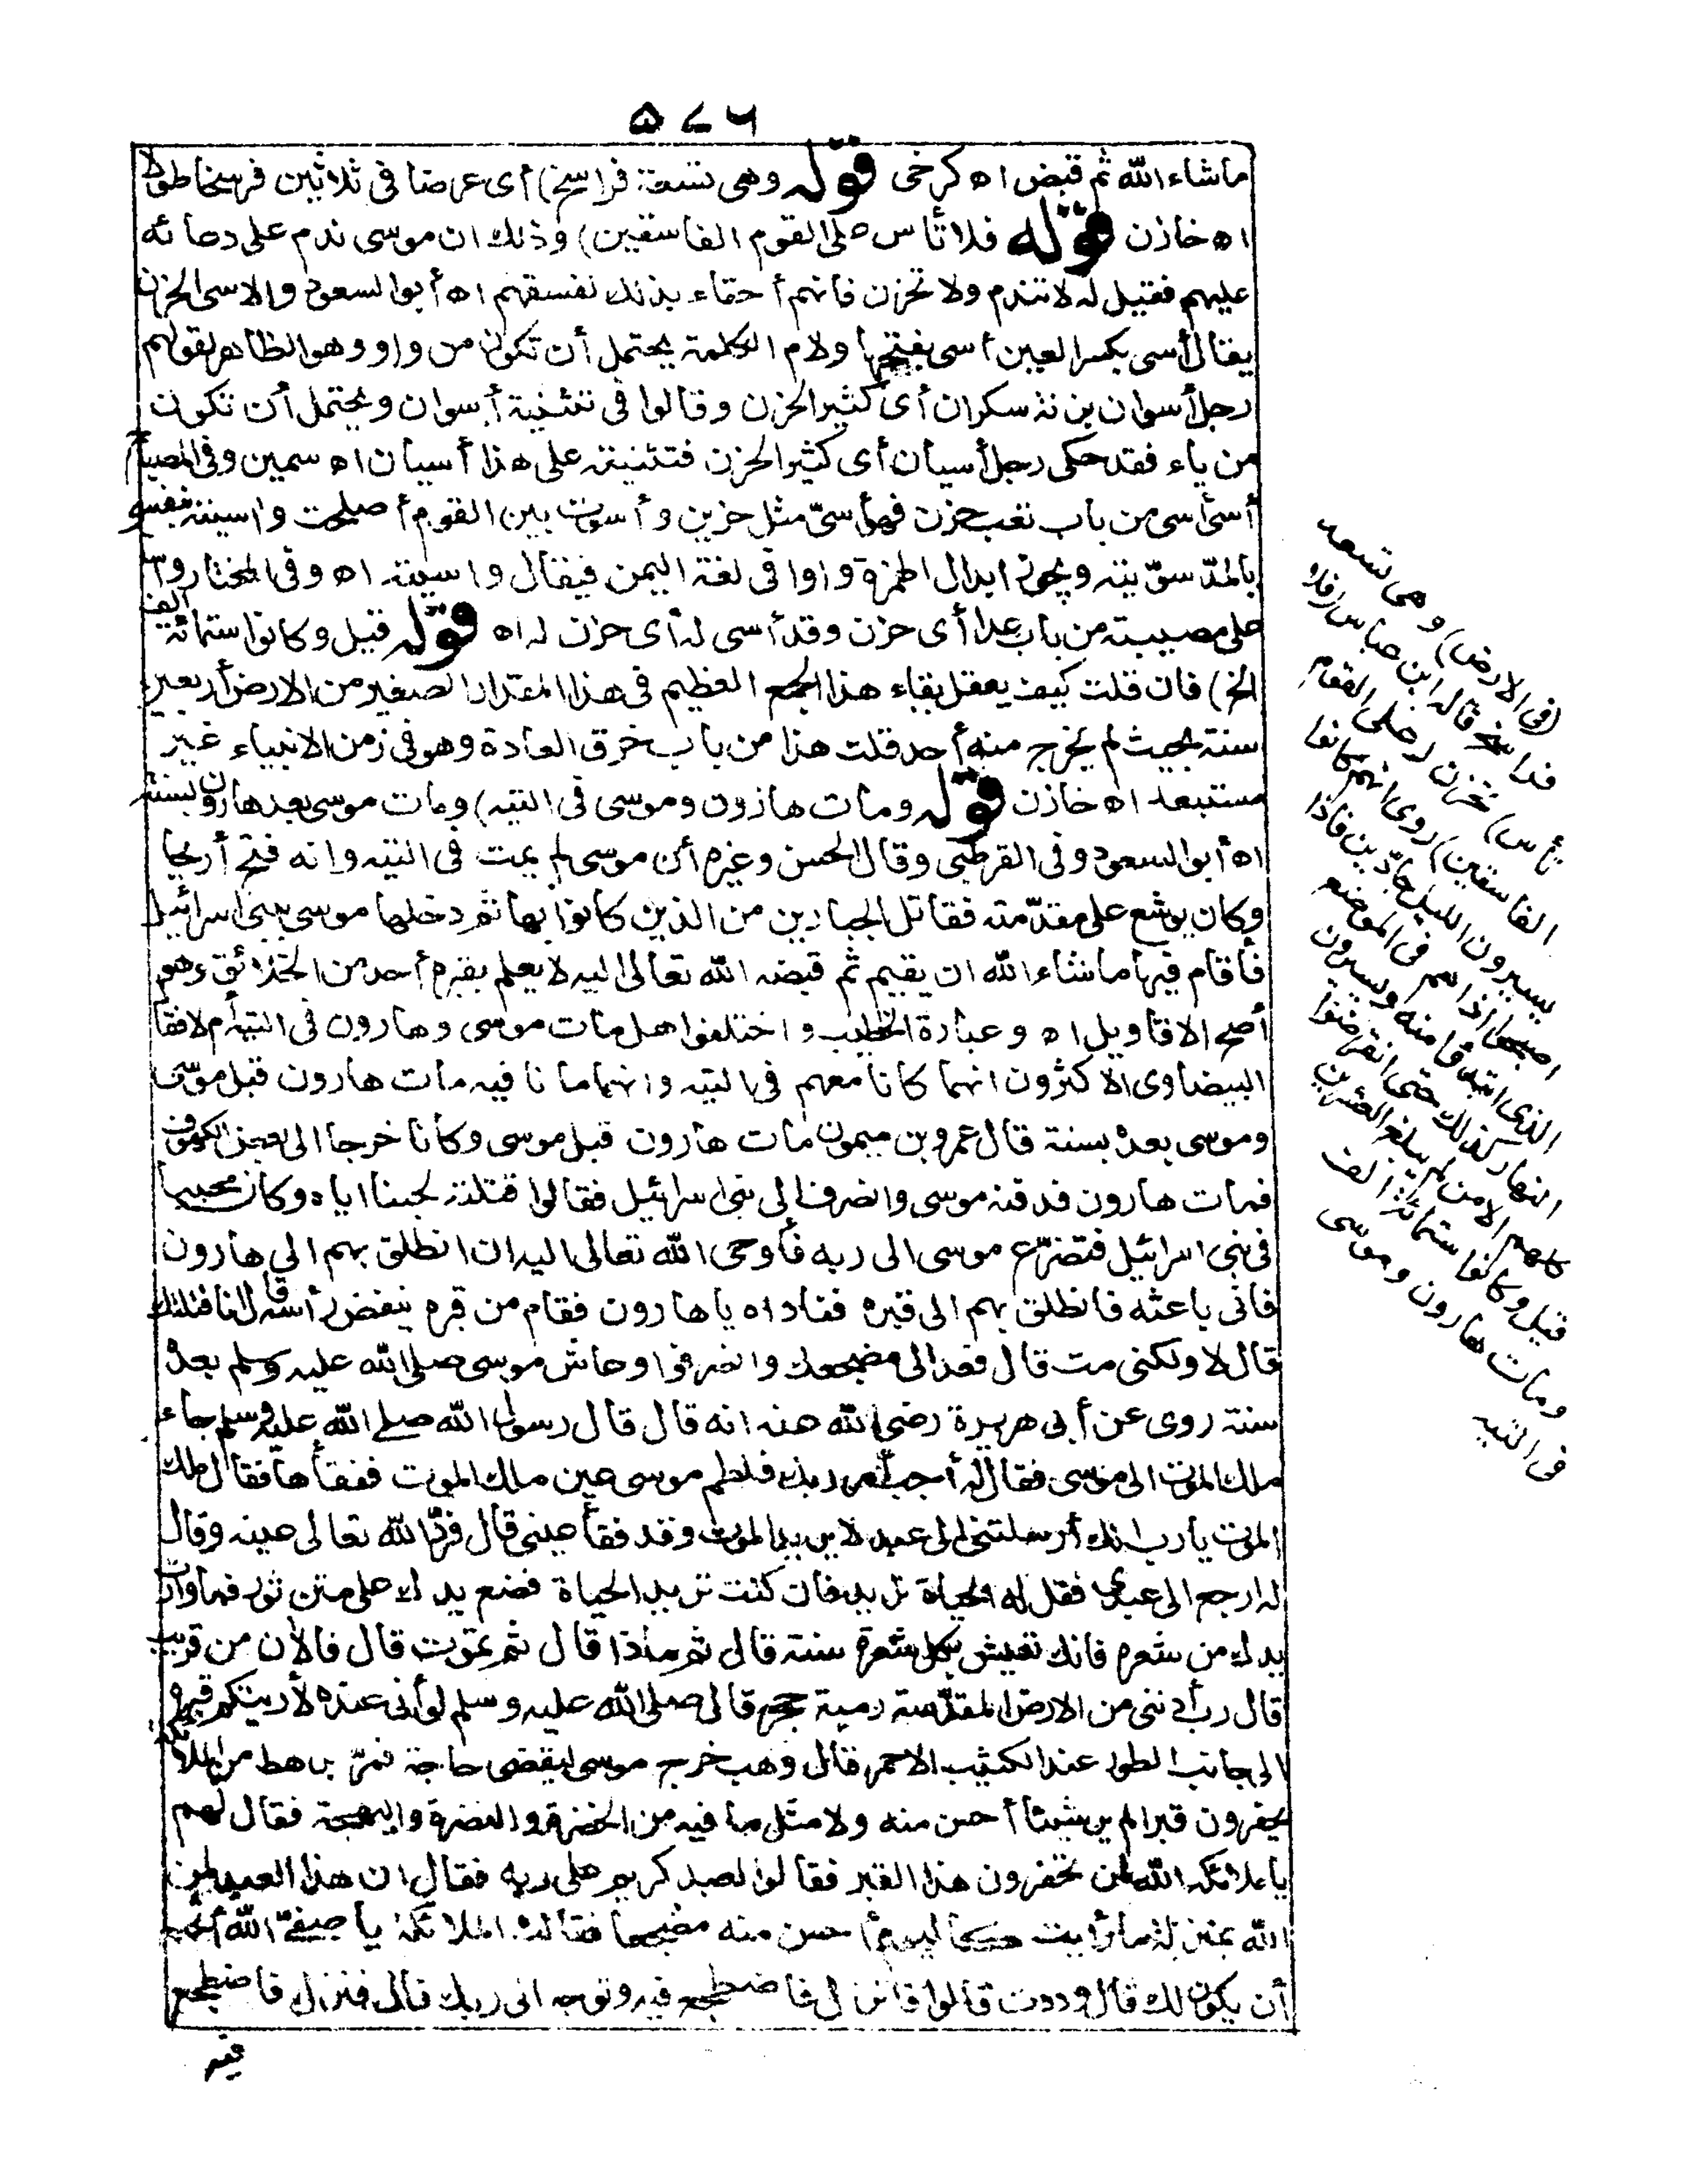 ٥٧٦
ماشاء الله ثم قبض اه كرخى قوله وهى تسعة فراسخ) أى عرضا فى ثلاثين فرسخا طولا
اه خازن قوله فلا تأس على القوم الفاسقين) وذلك ان موسى ندم على دعائه
عليهم فقيل له لا تندم ولا تحزن فانهم أحقاء بذلك لفسقهم اه أبو السعود والاسى الحزن
يقال أسى بكسر العين أسى بفتحها ولام الكلمة يحتمل أن تكون من واو وهو الظاهر لقولهم
رجل أسوان بزنة سكران أى كثير الحزن وقالوا فى تثنية أسوان ويحتمل أن تكون
من ياء فقد حكى رجل أسيان أى كثير الحزن فتثنيته على هذا أسيان اه سمين وفى المصباح
أسى أسى من باب تعب حزن فهو أسىّ مثل حزين وأسوت بين القوم أصلحت واسيته بنفسى
بالمدّ سوّيته ويجوز ابدال الهمزة واوا فى لغة اليمن فيقال واسيته اه وفى المختار وأسى
على مصيبته من باب عدا أى حزن وقد أسى له أى حزن له اه قوله قيل وكانوا ستمائة ألف
الخ) فان قلت كيف يعقل بقاء هذا الجمع العظيم فى هذا المقدار الصغير من الارض أربعين
سنة بحيث لم يخرج منه أحد قلت هذا من باب خرق العادة وهو فى زمن الانبياء غير
مستبعد اه خازن قوله ومات هارون وموسى فى التيه) ومات موسى بعد هارون بسنة
اه أبو السعود وفى القرطبى وقال الحسن وغيره أن موسى لم يمت فى التيه وانه فتح أريحا
وكان يوشع على مقدّمته فقاتل الجبارين من الذين كانوا بها ثم دخلها موسى ببنى اسرائيل
فأقام فيها ماشاء الله ان يقيم ثم قبضه الله تعالى اليه لا يعلم بقبره أحد من الخلائق وهو
أصح الاقاويل اه وعبارة الخطيب واختلفوا هل مات موسى وهارون فى التيه أم لا فقال
البيضاوى الاكثرون انهما كانا معهم فى التيه وانهما ماتا فيه مات هارون قبل موسى
وموسى بعده بسنة قال عمرو بن ميمون مات هارون قبل موسى وكانا خرجا الى بعض الكهوف
فمات هارون فدفنه موسى وانصرف الى بنى اسرائيل فقالوا قتلته لحبنا اياه وكان محببا
فى بنى اسرائيل فتضرّع موسى الى ربه فأوحى الله تعالى اليه ان انطلق بهم الى هارون
فانى باعثه فانطلق بهم الى قبره فناداه يا هارون فقام من قبره ينفض رأسه قال أنا قتلتك
قال لا ولكنى مت قال فعد الى مضجعك وانصرفوا وعاش موسى صلى الله عليه وسلم بعده
سنة روى عن أبى هريرة رضى الله عنه انه قال قال رسول الله صلى الله عليه وسلم جاء
ملك الموت الى موسى فقال له أجب أمر ربك فلطم موسى عين ملك الموت ففقأها فقال ملك
الموت يا رب انك أرسلتنى الى عبد لا يريد الموت وقد فقأ عينى قال فردّ الله تعالى عينه وقال
له ارجع الى عبدى فقل له الحياة تريد فان كنت تريد الحياة فضع يدك على متن ثور فما وارت
يدك من شعره فانك تعيش بكل شعرة سنة قال ثم ماذا قال ثم تموت قال فالآن من قريب
قال رب أدننى من الارض المقدّسة رمية حجر قال صلى الله عليه وسلم لو أنى عنده لأريتكم قبره
الى جانب الطور عند الكثيب الاحمر قال وهب خرج موسى ليقضى حاجة فمرّ برهط من الملائكة
يحفرون قبرا لم ير شيئا أحسن منه ولا مثل ما فيه من الخضرة والنضرة والبهجة فقال لهم
يا ملائكة الله لمن تحفرون هذا القبر فقالوا لعبد كريم على ربه فقال ان هذا العبد لمن
الله بمنزلة ما رأيت كاليوم أحسن منه مضجعا فقالت الملائكة يا صفىّ الله أتحب
أن يكون لك قال وددت قالوا فانزل فاضطجع فيه وتوجه الى ربك قال فنزل فاضطجع
فيه
(فى الارض) وهى تسعة
فراسخ قاله ابن عباس (فلا
تأس) تحزن (على القوم
الفاسقين) روى انهم كانوا
يسيرون الليل جادّين فاذا
اصبحوا اذا هم فى الموضع
الذى ابتدؤا منه ويسيرون
النهار كذلك حتى انقرضوا
كلهم الا من لم يبلغ العشرين
قيل وكانوا ستمائة ألف
ومات هارون وموسى
فى التيه